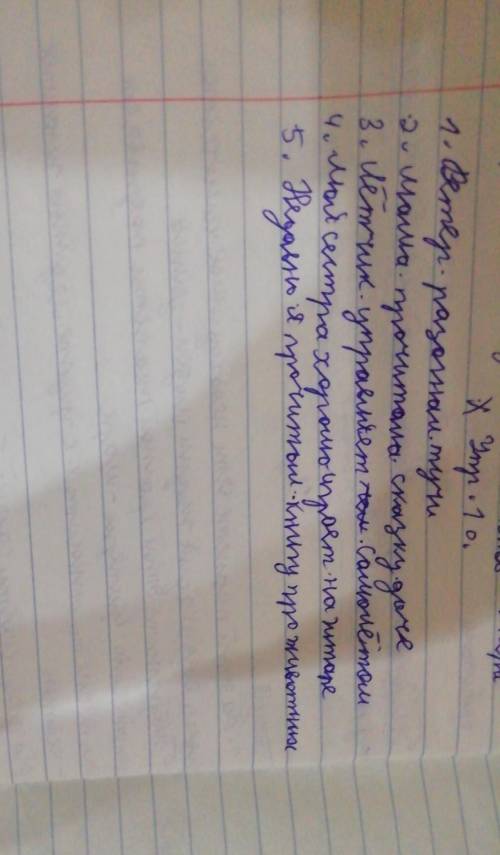 Упр. 10.
1. Ветер. разогнал. тучи
2. Мама. прочитала. сказку. даче
3. Лётчик. управляет самолётом
4. Моя сестра хорошо играет на гитаре
5. Недавно я прочитал. книгу про животных